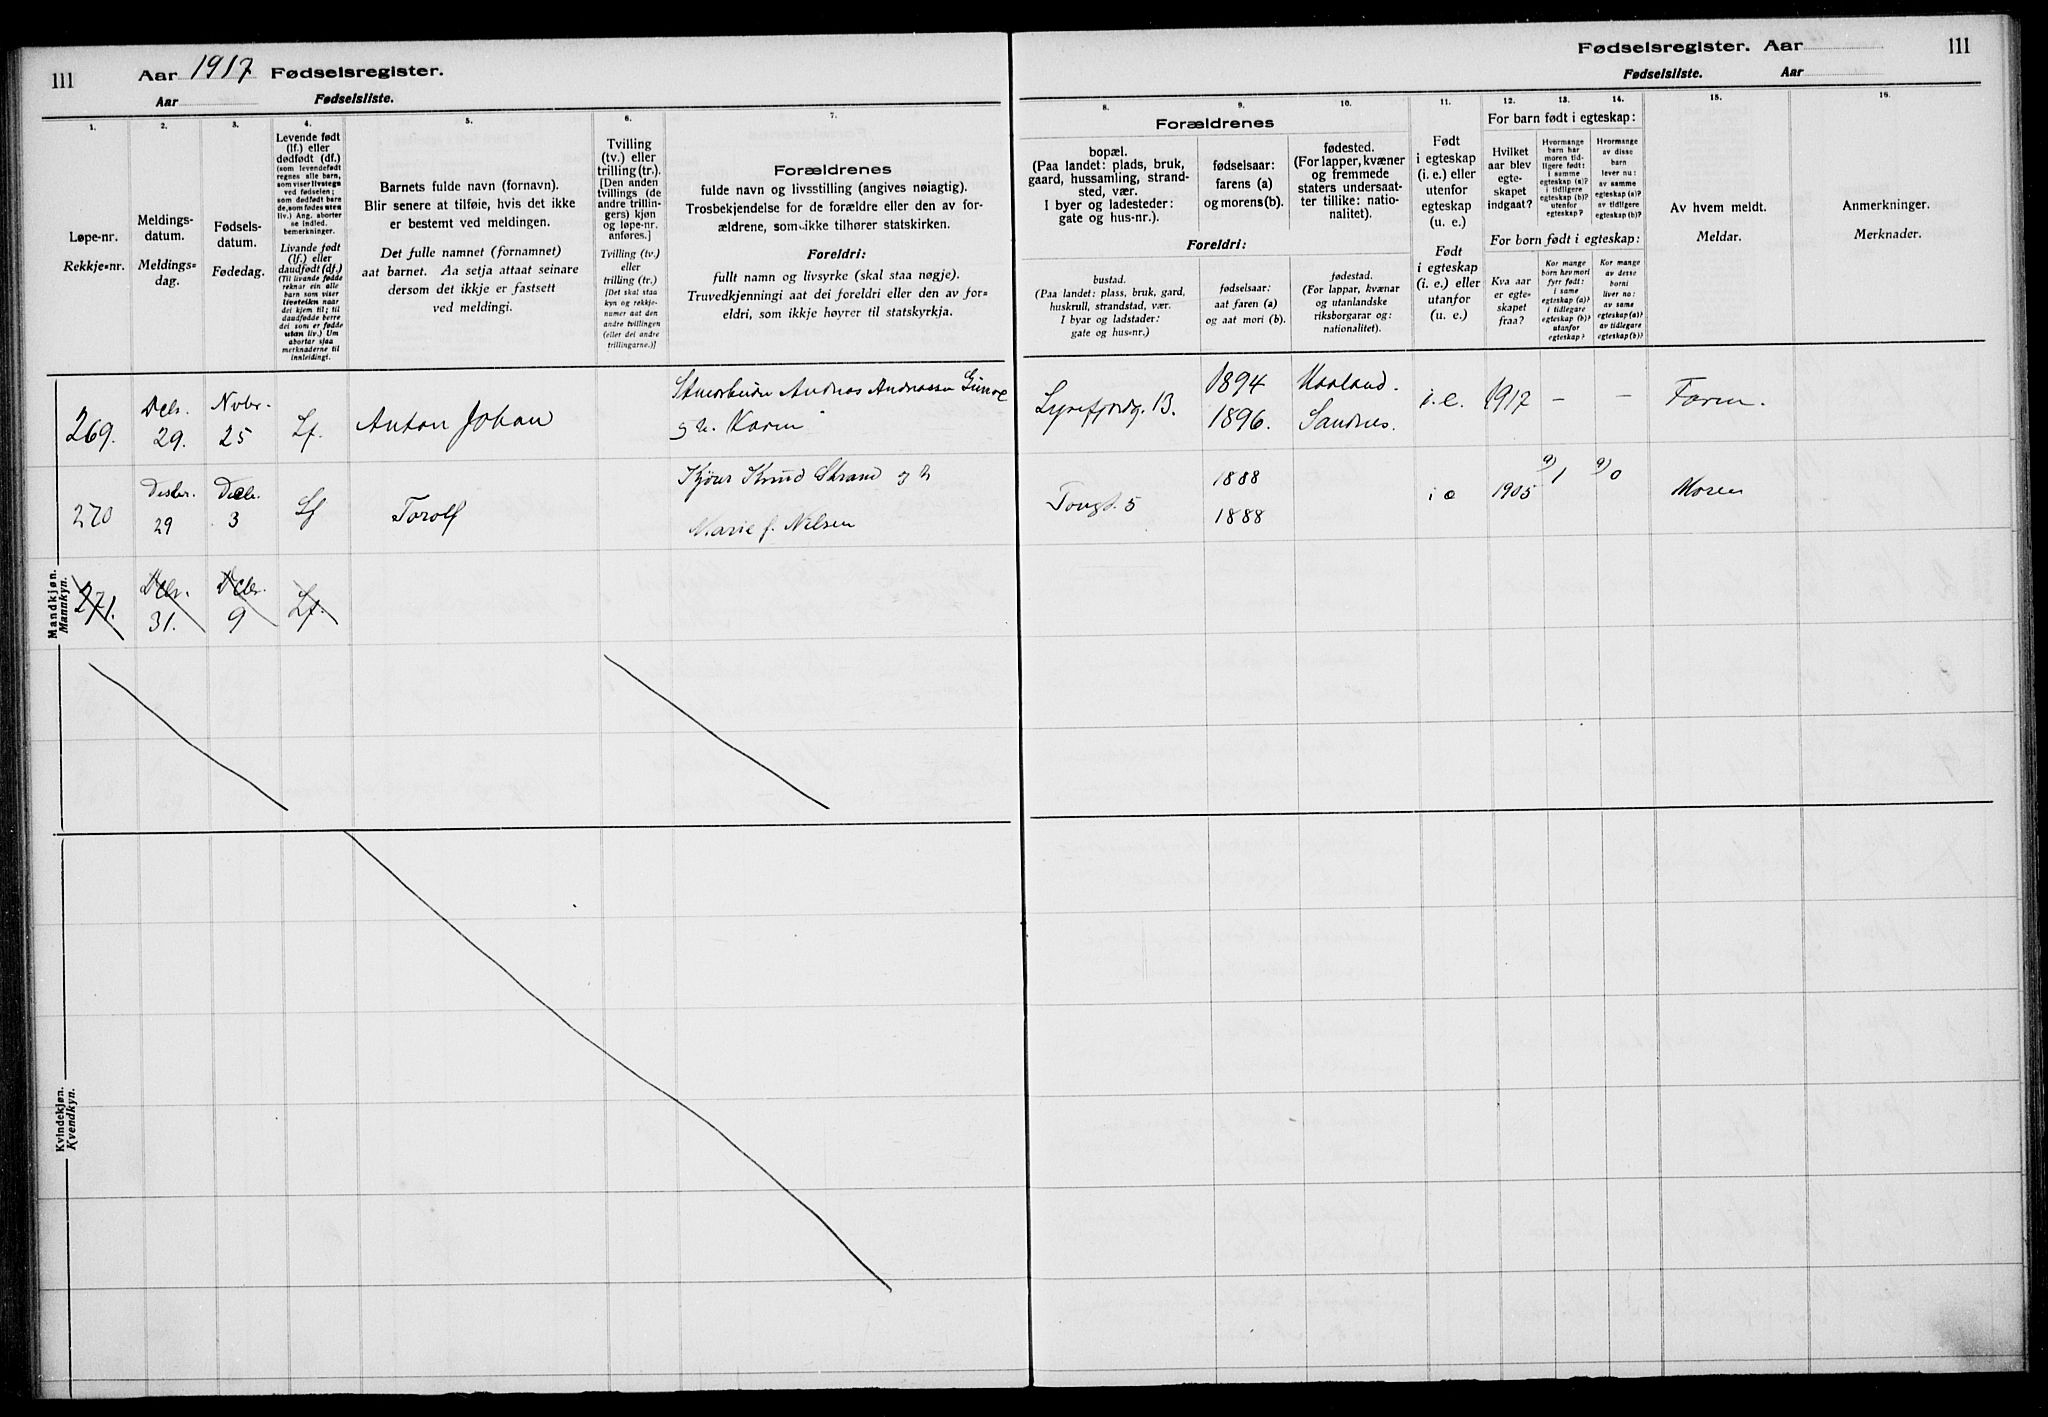 111
Aar 1917 Fødselsregister.
Aar Fødselsliste.
Fødselsregister. Aar
111
Fødselsliste. Aar
1.
2.
3.
4.
5.
6.
7.
8.
9.
10.
11.
12.
13.
14.
15.
16.
Løpe-nr.
Rekkje-nr.
Meldings-
datum.
Meldings-
dag.
Fødsels-
datum.
Fødedag.
Levende født
(lf.) eller
dødfødt (df.)
(som levendefødt
regnes alle barn,
som viser livstegn
ved fødselen;
som dødfødt bare
de, som fødes uten
liv.) Ang. aborter
se indled.
bemerkninger.
Livande født
(lf.) eller
daudfødt (df.)
(Til livande fødde
reknar ein alle
barn som viser
livsteikn naar
dei kjem til; til
daudfødde berre
dei som er fødde
utan liv.) Um
abortar sjaa
merknaderne til
innleidingi.
Barnets fulde navn (fornavn).
Blir senere at tilføie, hvis det ikke
er bestemt ved meldingen.
Det fulle namnet (fornamnet)
aat barnet. Aa setja attaat seinare
dersom det ikkje er fastsett
ved meldingi.
Tvilling
(tv.) eller
trilling (tr.).
[Den anden
tvillings (de
andre trillin-
gers) kjøn
og løpe-nr.
anføres.]
Tvilling (tv.)
eller
trilling (tr.)
[Det skal staa
kyn og rekkje-
numer aat den
andre tvillingen
(eller dei andre
trillingarne.)]
Forældrenes
fulde navn og livsstilling (angives nøiagtig).
Trosbekjendelse for de forældre eller den av for-
ældrene, som ikke tilhører statskirken.
Foreldri:
fullt namn og livsyrke (skal staa nøgje).
Truvedkjenningi aat dei foreldri eller den av for-
eldri, som ikkje høyrer til statskyrkja.
Forældrenes
bopæl.
(Paa landet: plads, bruk,
gaard, hussamling, strand-
sted, vær.
I byer og ladesteder:
gate og hus-nr.).
fødselsaar:
farens (a)
og morens (b).
fødested.
(For lapper, kvæner
og fremmede
staters undersaat-
ter tillike: natio-
nalitet).
Foreldri:
bustad.
(Paa landet: plass, bruk, gard,
huskrull, strandstad, vær.
I byar og ladstader:
gate og hus-nr.)
fødselsaar:
aat faren (a)
og aat mori (b).
fødestad.
(For lappar, kvænar
og utanlandske
riksborgarar og:
nationalitet).
Født
i egteskap
(i. e.) eller
utenfor
egteskap
(u. e.)
Født
i egteskap
(i. e.) eller
utanfor
(u. e.)
For barn født i egteskap:
Hvilket
aar blev
egte-
skapet
indgaat?
Hvormange
barn har
moren tid-
ligere født:
i samme
egteskap (a)?
i tidligere
egteskap (b)?
utenfor
egteskap?
Hvormange
av disse
barn
lever nu:
av samme
egteskap (a)?
av tidligere
egteskap (b)?
For born født i egteskap:
Kva aar
er egte-
skapet
fraa?
Kor mange
born hev mori
fyrr født:
i same
egteskap (a)?
i tidlegare
egteskap (b)?
utanfor
egteskap?
Kor mange
av desse
borni
liver no:
av same
egteskap (a)?
av tidlegare
egteskap (b)?
Av hvem meldt.
Meldar.
Anmerkninger.
Merknader.
Mandkjøn.
Mannkyn.
269. Dcbr. 29. Nvbr. 25 Lf. Anton Johan
Andreas Andreassen
og h. Karin
13. 1894 Haaland.
1896. Sandnes. i.e. 1917 – – Faren.
270 Desbr. 29 Decbr. 3 Lf Torolf
Kjører Knud Strand og h
Marie f. Nilsen
5 1888
1888 i e 1905 a) 1 a) 0 Moren
271. Dcbr. 31. Dcbr. 9 Lf.
Kvindekjøn.
Kvendkyn.